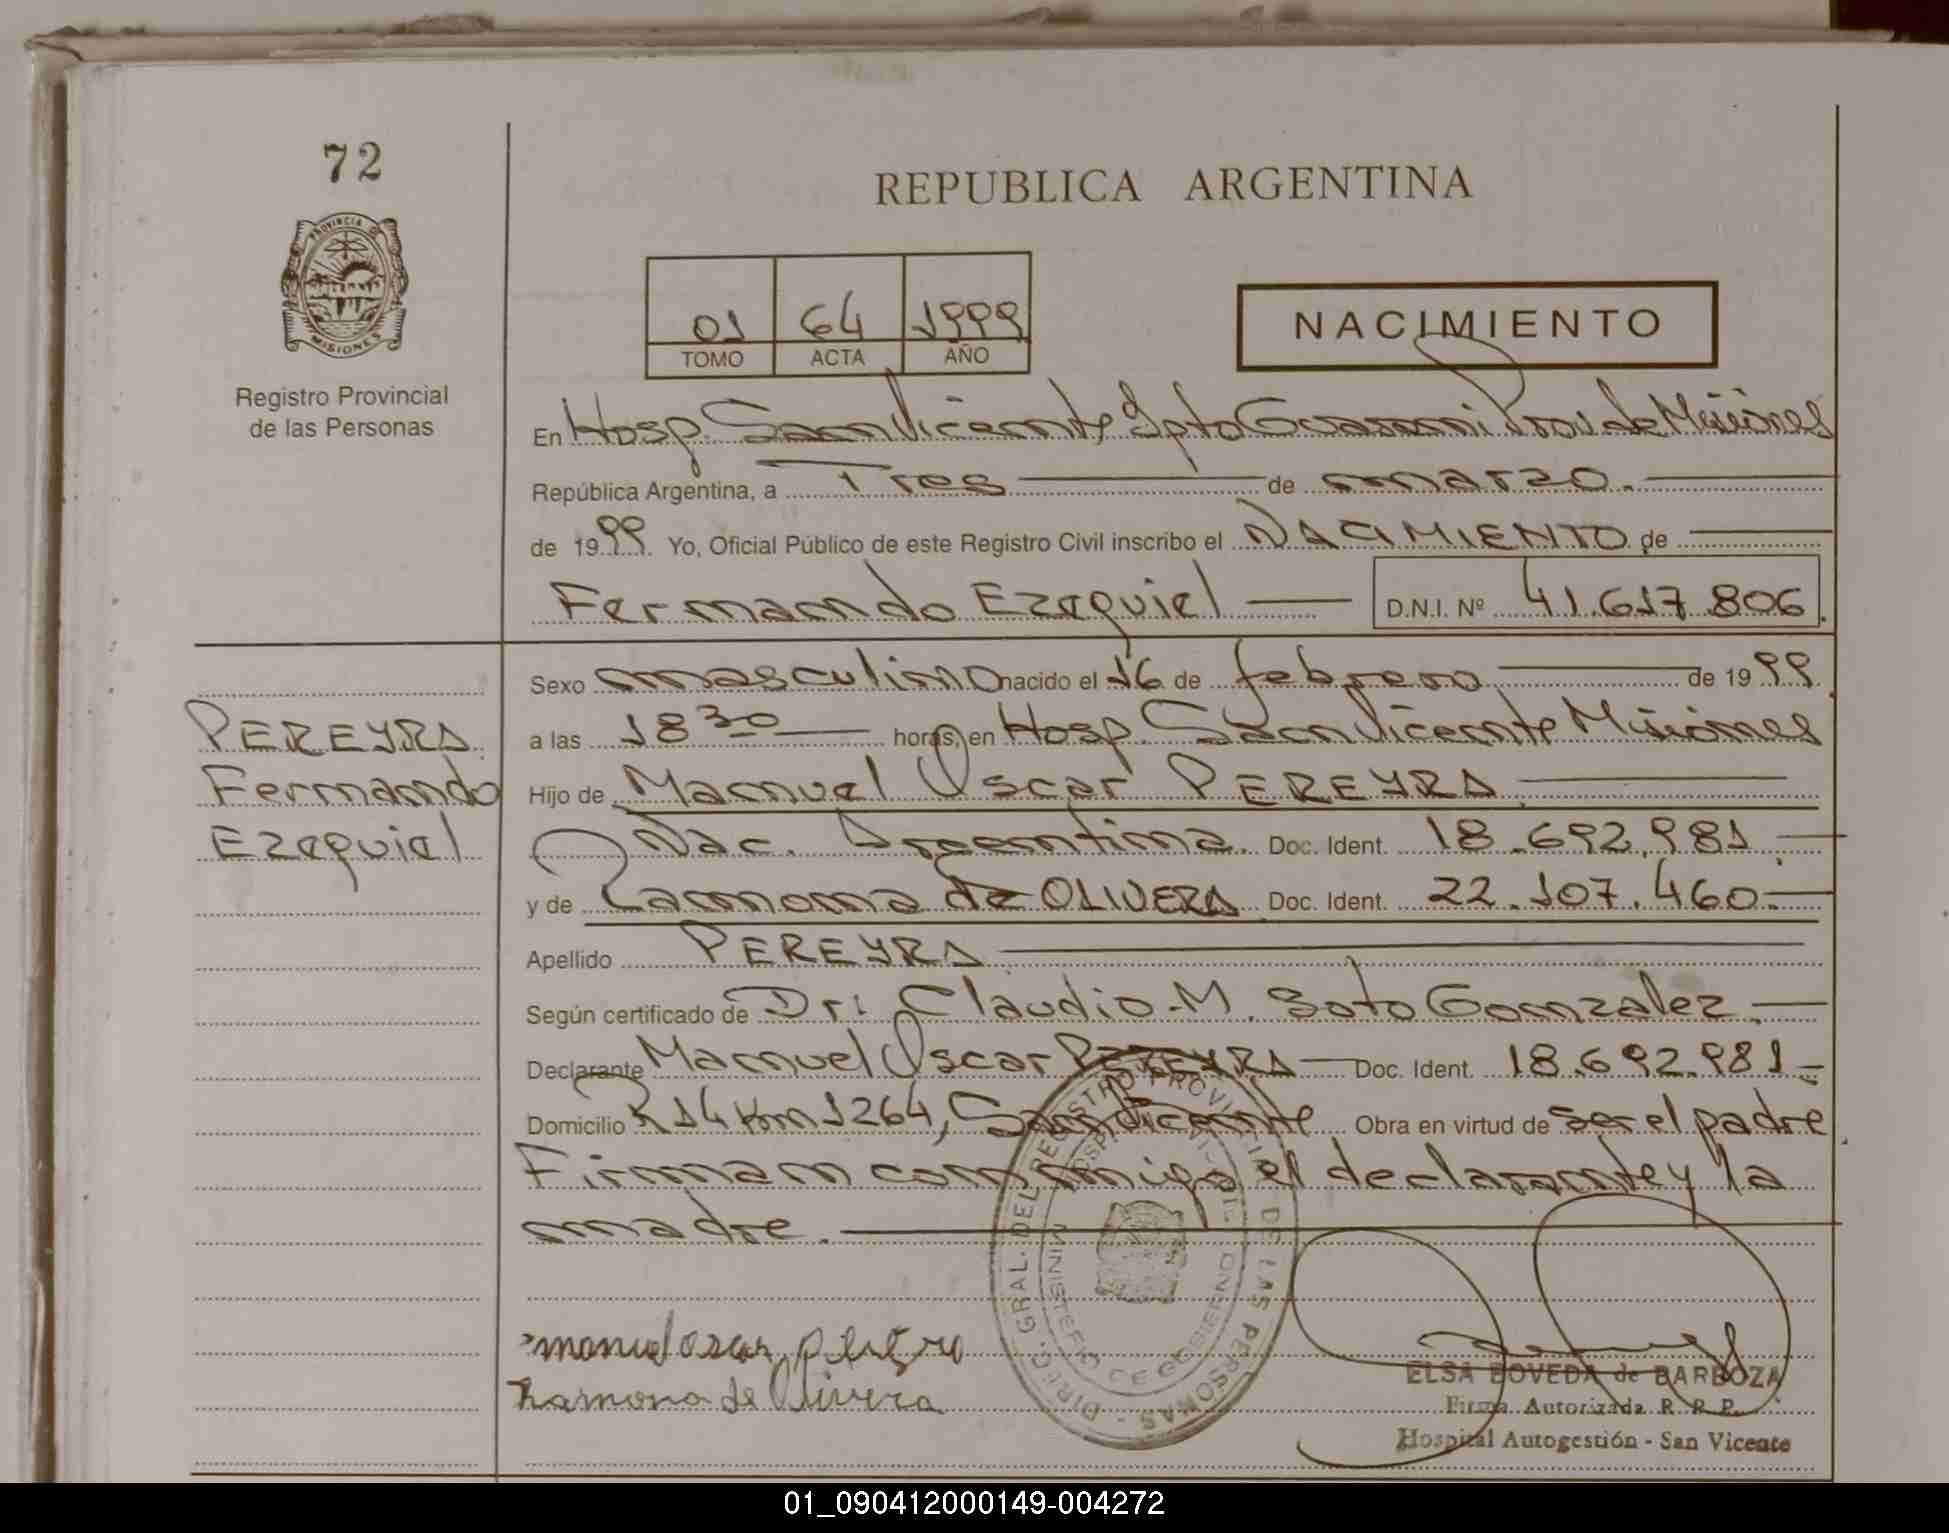 72
REPUBLICA ARGENTINA
PROVINCIA DE
MISIONES
01 64 1999
TOMO ACTA AÑO
NACIMIENTO
Registro Provincial
de las Personas
En Hosp. San Vicente Dpto Guarani Prov de Misiones
República Argentina, a Tres de marzo.
de 1999. Yo, Oficial Público de este Registro Civil inscribo el NACIMIENTO de
Fernando Ezequiel D.N.I. Nº 41.617.806
Sexo masculino nacido el 16 de febrero de 1999
PEREYRA
Fernando
Ezequiel
a las 18 30 horas, en Hosp. San Vicente Misiones
Hijo de Manuel Oscar PEREYRA
Nac. Argentina. Doc. Ident. 18.692.981
y de Ramona de OLIVERA Doc. Ident. 22.107.460
Apellido PEREYRA
Según certificado de Dr: Claudio M. Soto Gonzalez
Declarante Manuel Oscar PEREYRA Doc. Ident. 18.692.981
Domicilio R 14 Km 1264, San Vicente Obra en virtud de ser el padre
Firman conmigo el declarante y la
madre.
DIREC. GRAL. DEL REGISTRO PROVINCIAL DE LAS PERSONAS
MINISTERIO DE GOBIERNO
manuel oscar pereyra
Ramona de Olivera
ELSA BOVEDA de BARBOZA
Firma Autorizada R. P. P.
Hospital Autogestión - San Vicente
01_090412000149-004272